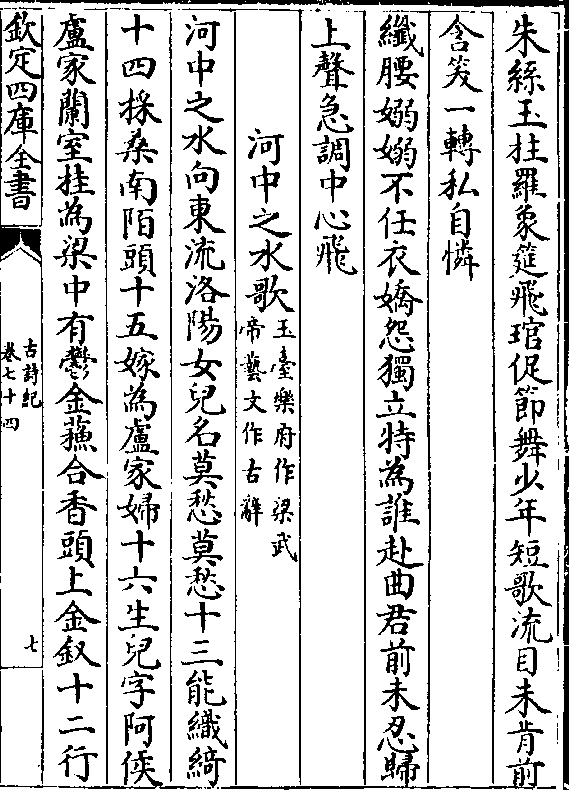 朱絲玉柱羅象筵飛琯促節舞少年短歌流目未肯前
含笑一轉私自憐
纖腰嫋嫋不任衣嬌怨獨立特為誰赴曲君前未忍歸
上聲急調中心飛
河中之水歌玉臺樂府作梁武
帝藝文作古辭
河中之水向東流洛陽女兒名莫愁莫愁十三能織綺
十四採桑南陌頭十五嫁為盧家婦十六生兒字阿侯
盧家蘭室桂為梁中有鬱金蘓合香頭上金釵十二行
欽定四庫全書
古詩紀
卷七十四
七